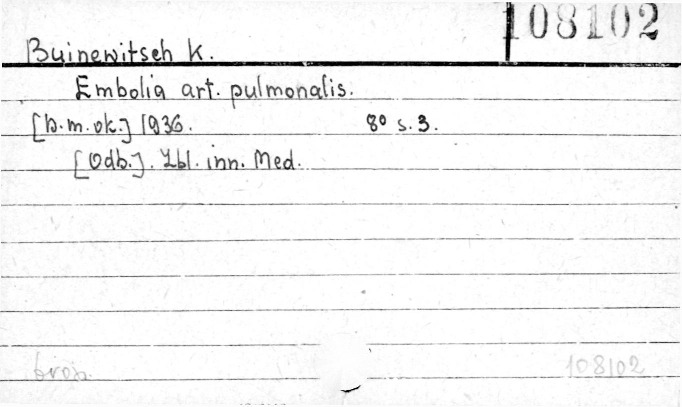 108102
Buinewitsch K.
Embolia art. pulmonalis.
[b.m.ok.] 1936. 8° s. 3.
[Odb.]. Zbl. inn. Med.
brosz. 108102